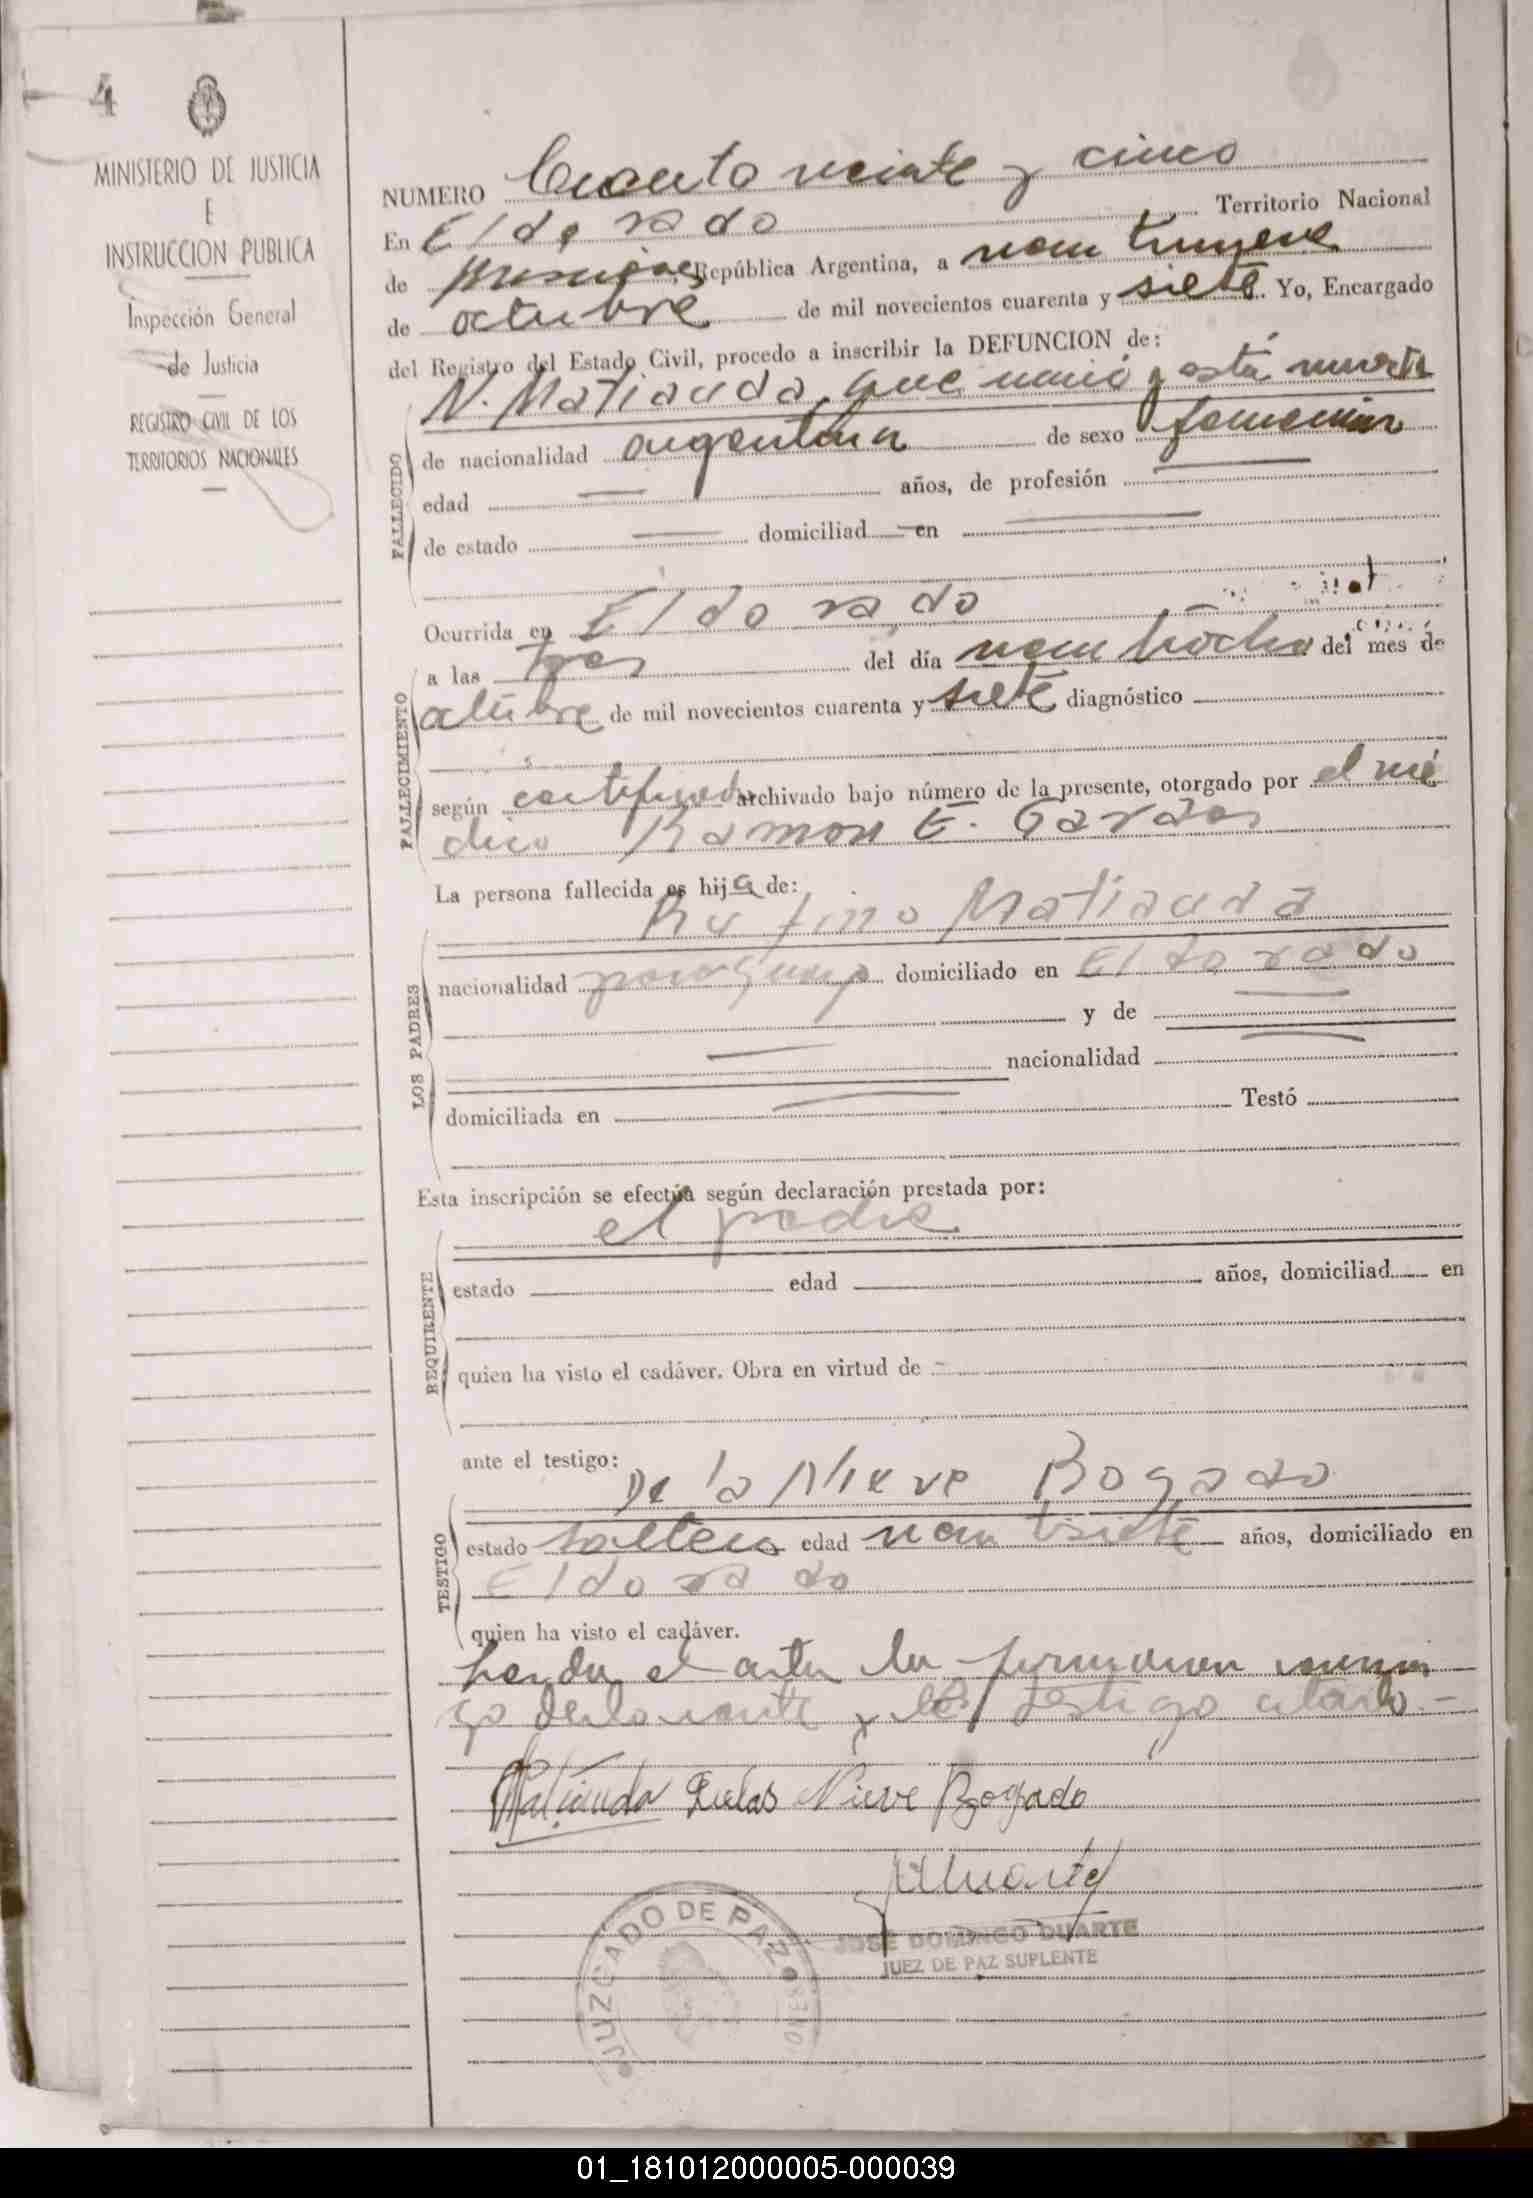 4
MINISTERIO DE JUSTICIA
E
INSTRUCCION PUBLICA
Inspección General
de Justicia
REGISTRO CIVIL DE LOS
TERRITORIOS NACIONALES
NUMERO Ciento veinte y cinco
En Eldorado Territorio Nacional
de Misiones, República Argentina, a
de octubre de mil novecientos cuarenta y siete. Yo, Encargado
del Registro del Estado Civil, procedo a inscribir la DEFUNCION de:
N. Matiauda, que nació y está muerta
FALLECIDO
de nacionalidad argentina de sexo femenino
edad — años, de profesión —
de estado — domiciliad — en —
Ocurrida en Eldorado
a las tres del día del mes de
FALLECIMIENTO
octubre de mil novecientos cuarenta y siete diagnóstico
según certificado archivado bajo número de la presente, otorgado por el mé
dico Ramon E.
La persona fallecida es hija de:
Rufino Matiauda
LOS PADRES
nacionalidad paraguayo domiciliado en Eldorado
y de —
— nacionalidad —
domiciliada en — Testó
Esta inscripción se efectúa según declaración prestada por:
el padre
REQUIRENTE
estado edad años, domiciliad en
quien ha visto el cadáver. Obra en virtud de
ante el testigo:
De la Nieve Bogado
TESTIGO
estado soltero edad veintisiete años, domiciliado en
Eldorado
quien ha visto el cadáver.
el acta la firmaron
declarante y el testigo citado.-
Matiauda Nieve Bogado
JOSE DOMINGO DUARTE
JUEZ DE PAZ SUPLENTE
JUZGADO DE PAZ
01_181012000005-000039